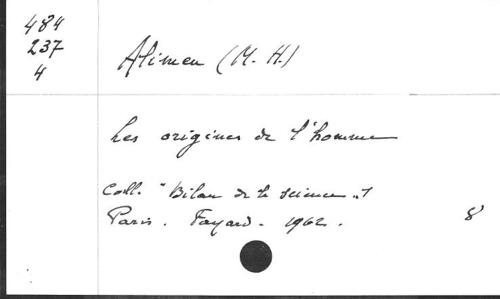 484
237
4
Alimen (M. H.)
Les origines de l'homme
Coll. "Bilan de la science" 1
Paris. Fayard. 1962.
8